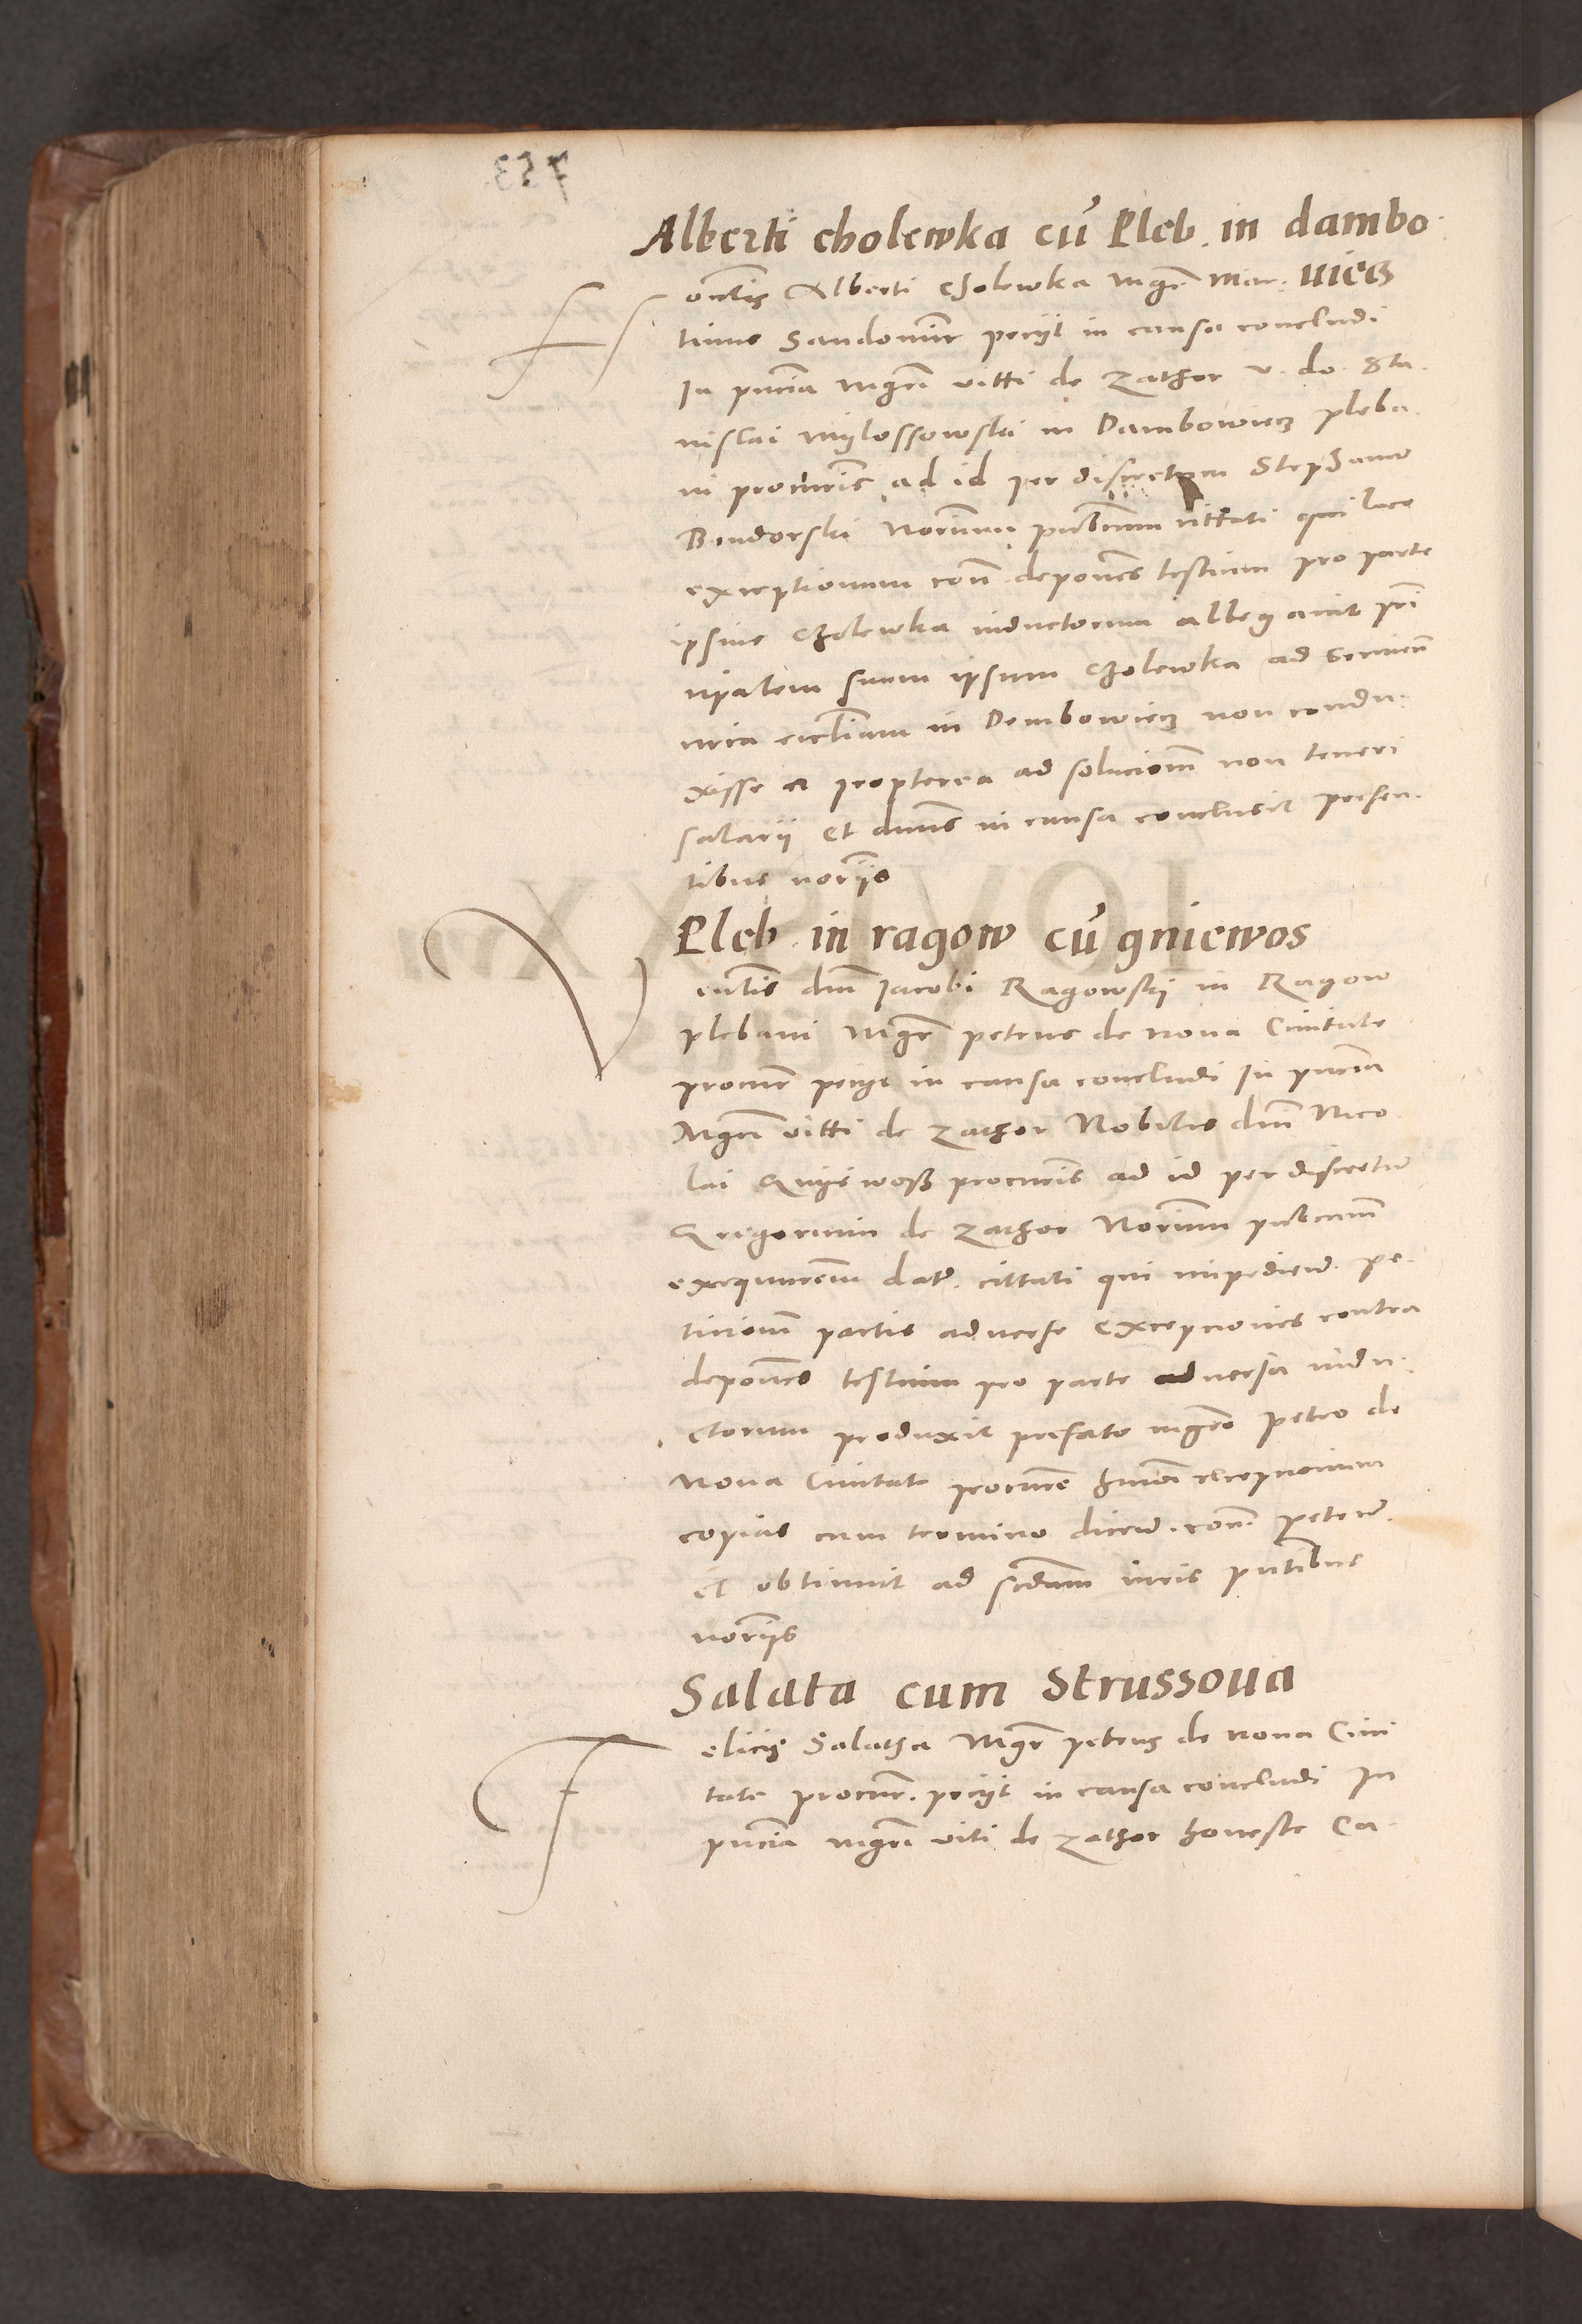 Alberti cholewka cū Pleb. in dambo
wiecz
Honeſtis Alberti Cholewka Mgr̄ Mar-
tinus Sandomir petijt in causa concludi
In pn̄cia Mgrī vitti de Zathor v. do. Sta-
nislai Mylossowski in Dambowiecz pleba-
ni procur̄is ad id per discretum Stephanū
Bendorski Nor̄ium publicum cittati qui loco
exceptionum con̄ depon̄es testium pro parte
ipsius Cholewka inductorum allegavit prī
cipalem suum ipsum Cholewka ad servien
ecclīam in Dembowiecz non condu-
xisse et propterea ad solucionē non teneri
salarij Et dn̄us in causa conclusit presen-
tibus norijs
Pleb. in ragow cū gniewos
Ven̄lis dnī Jacobi Ragowskij in Ragow
plebani Mgr̄ petrus de Nova Civitate
procur̄ petijt in causa concludi In pn̄cia
Mgrī vitti de Zathor Nobilis dnī Nico-
lai Gnyewosz procur̄is ad id per discretū
Gregorium de Zathor Nor̄ium publicum
dat. cittati qui impediend. pe-
ticionē partis adverse Excepciones contra
depon̄es testium pro parte adversa indu-
ctorum produxit prefato mgr̄o Petro de
Nova Civitate procur̄e hm̄oi excepcionum
copias cum termino dicend. con̄. petend.
et obtinuit ad scd̄am iuris pn̄tibus
norijs
Salata cum Strussova
Felicis Salatha Mgr̄ petrus de nova Civi
tate procur̄. petijt in causa concludi In
pn̄cia mgrī viti de Zathor honeste Ca-